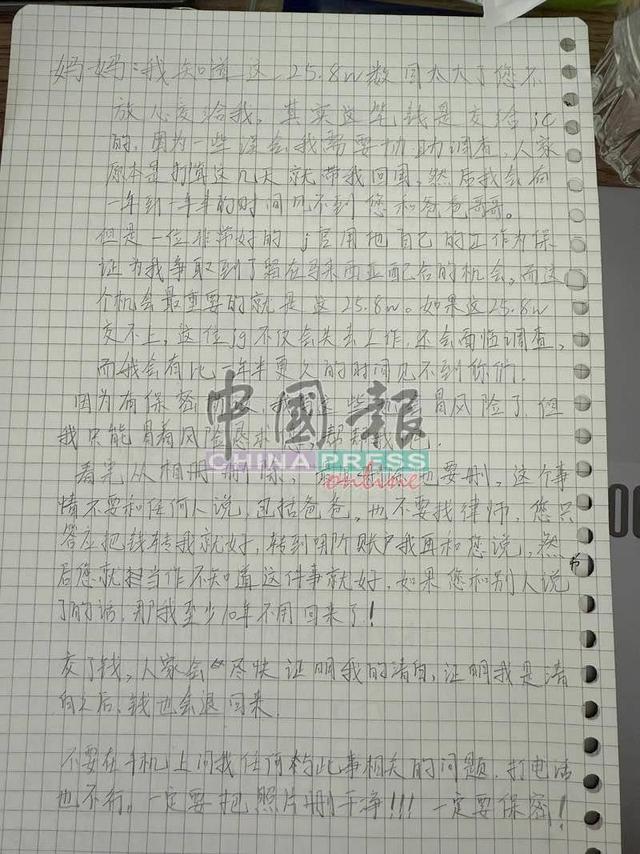 妈妈:我知道这25.8w数目太大了您不
放心交给我。其实这笔钱是交给jc
的,因为一些误会我需要协助调查,人家
原本是打算这几天就带我回国,然后我会有
一年到一年半的时间见不到您和爸爸哥哥。
但是一位非常好的j官用他自己的工作为保
证为我争取到了留在马来西亚配合的机会,而这
个机会最重要的就是这25.8w。如果这25.8w
交不上,这位jg不仅会失去工作,还会面临调查,
而我会有比一年半更久的时间见不到你们.
因为有保密 冒风险了,但
我只能冒着风险恳求 帮
中國報
CHINA PRESS
online
看完从相册删除, 也要删,这个事
情不要和任何人说,包括爸爸,也不要找律师,您只
答应把钱转我就好,转到哪个账户我再和您说,然
后您就当作不知道这件事就好,如果您和别人说
了的话,那我至少10年不用回来了!
交了钱,人家会尽快证明我的清白,证明我是清
白之后,钱也会退回来.
不要在手机上问我任何与此事相关的问题.打电话
也不行。一定要把照片删干净!!!一定要保密!